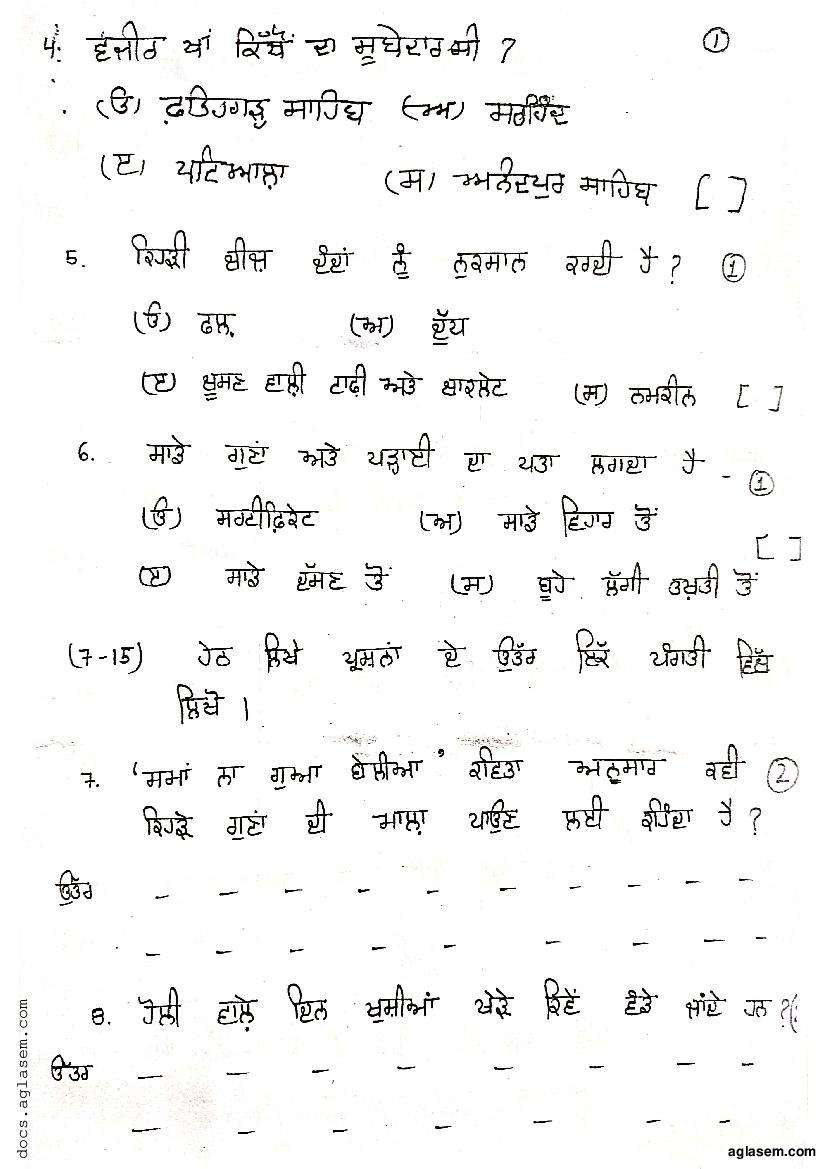 4. ਵਜ਼ੀਰ ਖਾਂ ਕਿੱਥੋਂ ਦਾ ਸੂਬੇਦਾਰ ਸੀ ? ①
(ੳ) ਫ਼ਤਿਹਗੜ੍ਹ ਸਾਹਿਬ (ਅ) ਸਰਹਿੰਦ
(ੲ) ਪਟਿਆਲਾ (ਸ) ਅਨੰਦਪੁਰ ਸਾਹਿਬ [ ]
5. ਕਿਹੜੀ ਚੀਜ਼ ਦੰਦਾਂ ਨੂੰ ਨੁਕਸਾਨ ਕਰਦੀ ਹੈ ? ①
(ੳ) ਫਲ਼ (ਅ) ਦੁੱਧ
(ੲ) ਚੂਸਣ ਵਾਲ਼ੀ ਟਾਫ਼ੀ ਅਤੇ ਚਾਕਲੇਟ (ਸ) ਨਮਕੀਨ [ ]
6. ਸਾਡੇ ਗੁਣਾਂ ਅਤੇ ਪੜ੍ਹਾਈ ਦਾ ਪਤਾ ਲਗਦਾ ਹੈ - ①
(ੳ) ਸਰਟੀਫ਼ਿਕੇਟ (ਅ) ਸਾਡੇ ਵਿਹਾਰ ਤੋਂ
[ ]
(ੲ) ਸਾਡੇ ਦੱਸਣ ਤੋਂ (ਸ) ਬੂਹੇ ਲੱਗੀ ਤਖ਼ਤੀ ਤੋਂ
(7-15) ਹੇਠ ਲਿਖੇ ਪ੍ਰਸ਼ਨਾਂ ਦੇ ਉੱਤਰ ਇੱਕ ਪੰਗਤੀ ਵਿੱਚ
ਲਿਖੋ ।
7. ‘ਸਮਾਂ ਨਾ ਗੁਆ ਬੇਲੀਆ’ ਕਵਿਤਾ ਅਨੁਸਾਰ ਕਵੀ ②
ਕਿਹੜੇ ਗੁਣਾਂ ਦੀ ਮਾਲ਼ਾ ਪਾਉਣ ਲਈ ਕਹਿੰਦਾ ਹੈ ?
ਉੱਤਰ – – – – – – – – – –
– – – – – – – –
8. ਹੋਲੀ ਵਾਲ਼ੇ ਦਿਨ ਖ਼ੁਸ਼ੀਆਂ ਖੇੜੇ ਕਿਵੇਂ ਵੰਡੇ ਜਾਂਦੇ ਹਨ ?
ਉੱਤਰ – – – – – – – –
– – – – – – – –
docs.aglasem.com
aglasem.com